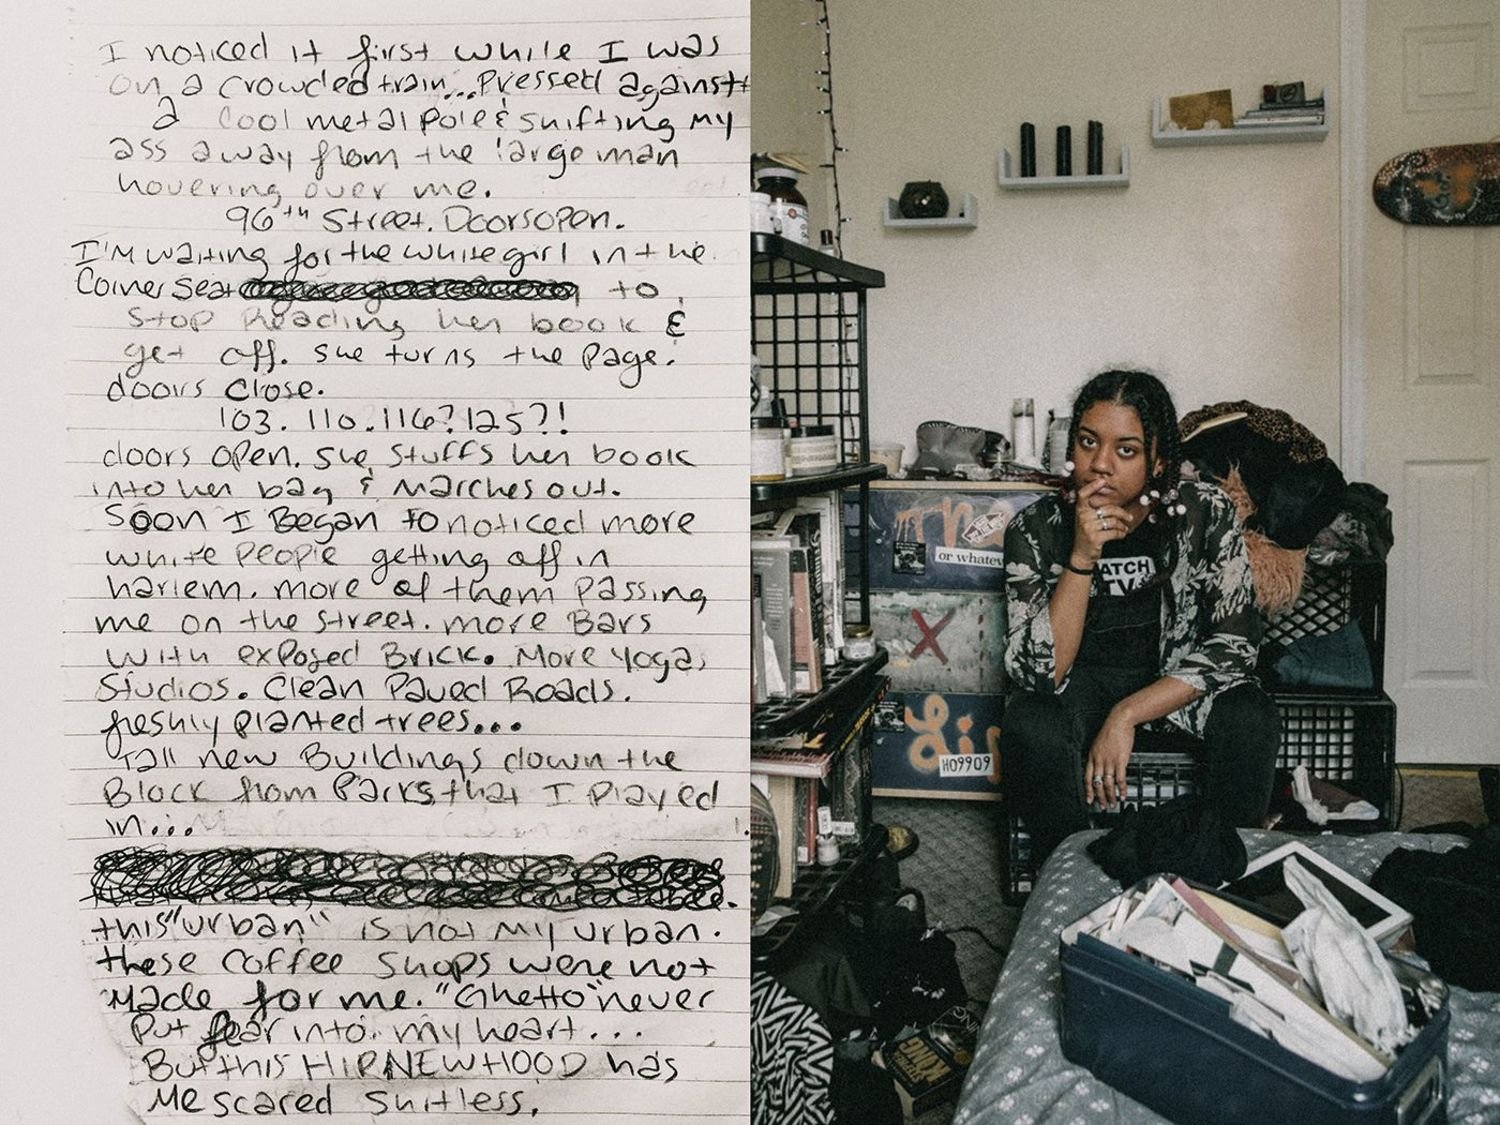 I noticed it first while I was
on a crowded train...Pressed against
a cool metal pole & shifting my
ass away from the large man
hovering over me.
96th Street. Doors open.
I'm waiting for the white girl in the
Corner Seat to
Stop Reading her book &
get off. she turns the page.
doors close.
103. 110. 116? 125?!
doors open. she stuffs her book
into her bag & Marches out.
Soon I Began to noticed more
white people getting off in
harlem. more of them passing
me on the street. more Bars
with exposed Brick. More yoga
Studios. Clean Paved Roads.
freshly planted trees...
Tall new Buildings down the
Block from Parks that I played
in...
this "urban" is not my urban.
these coffee shops were not
Made for me. "Ghetto" never
put fear into my heart...
But this HIPNEWHOOD has
Me scared shitless.
The
or whatev
ATCH
TV
X
Lir
H09909
KING